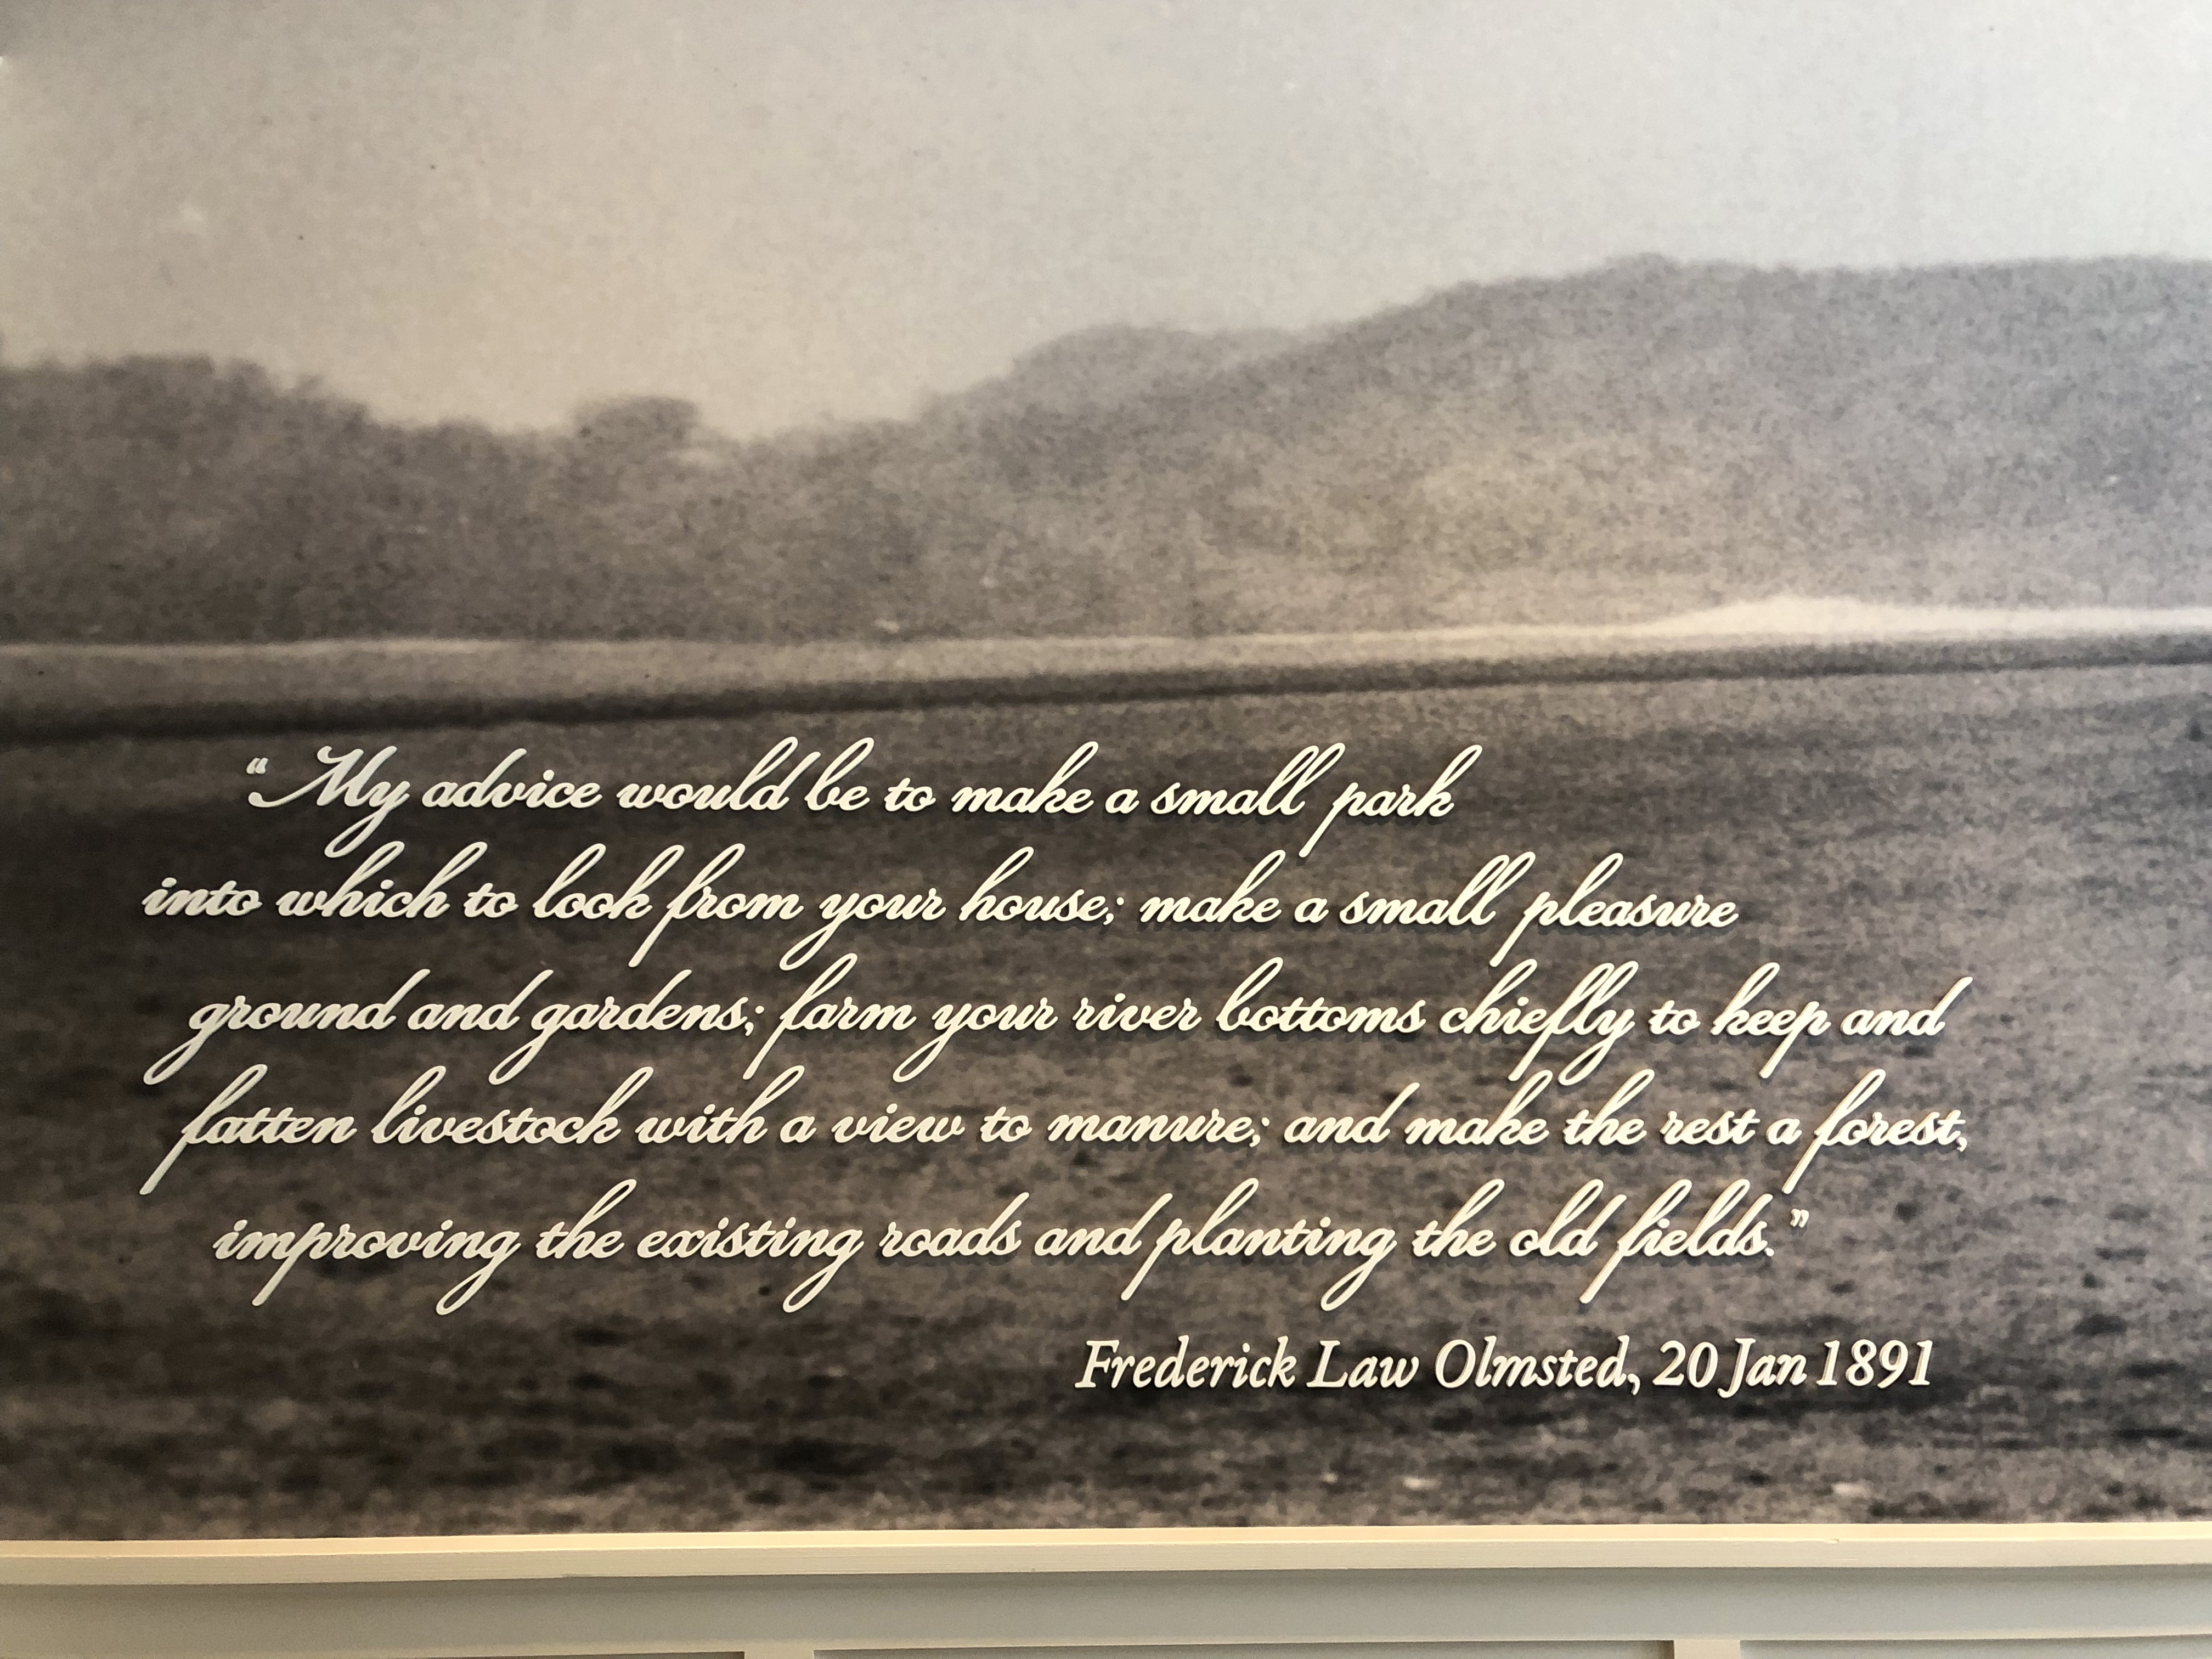 “My advice would be to make a small park
into which to look from your house; make a small pleasure
ground and gardens; farm your river bottoms chiefly to keep and
fatten livestock with a view to manure; and make the rest a forest,
improving the existing roads and planting the old fields.”
Frederick Law Olmsted, 20 Jan 1891